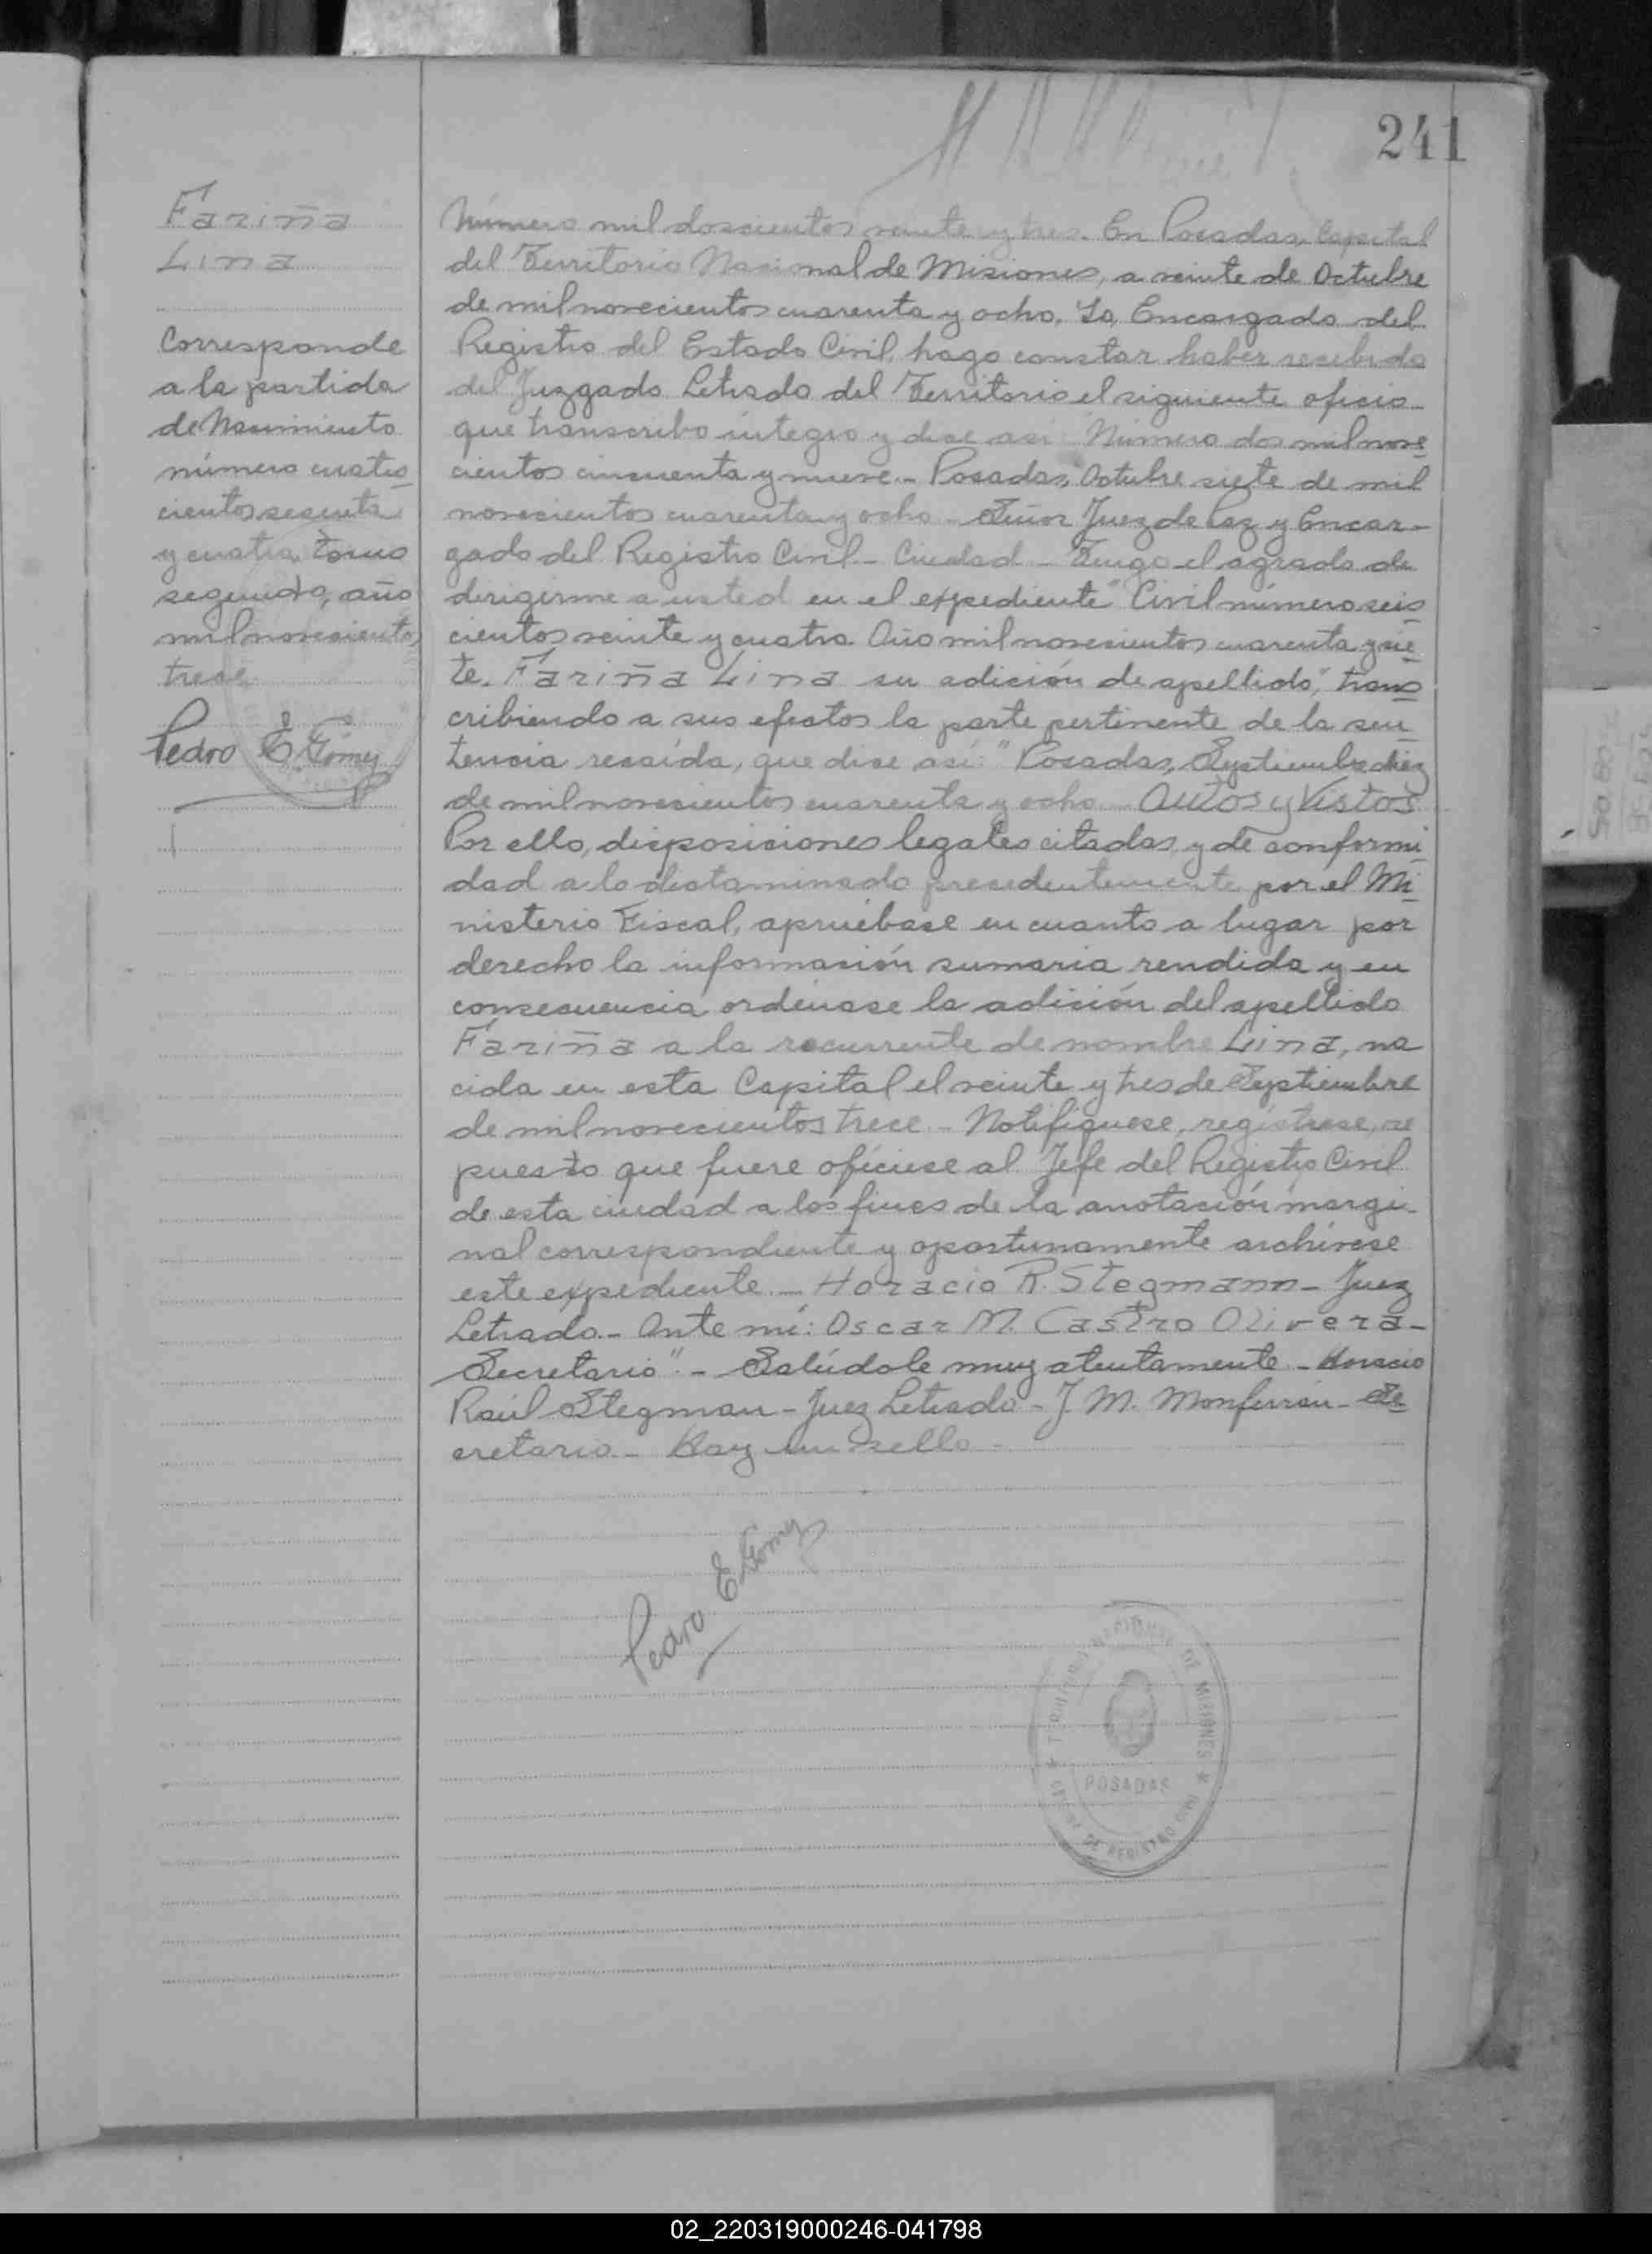 241
Fariña
Lina
Corresponde
a la partida
de Nacimiento
número cuatro
cientos sesenta
y cuatro tomo
segundo, año
mil novecientos
trece
Pedro E. Gómez
Número mil doscientos veinte y tres. En Posadas, Capital
del Territorio Nacional de Misiones, a veinte de Octubre
de mil novecientos cuarenta y ocho. Yo, Encargado del
Registro del Estado Civil, hago constar haber recibido
del Juzgado Letrado del Territorio el siguiente oficio
que transcribo integro y dice asi: Número dos mil nove
cientos cincuenta y nueve.- Posadas, Octubre siete de mil
novecientos cuarenta y ocho - Señor Juez de Paz y Encar-
gado del Registro Civil - Ciudad - Tengo el agrado de
dirigirme a usted en el expediente "Civil número seis
cientos veinte y cuatro Año mil novecientos cuarenta y sie
te. Fariña Lina su adición de apellido", trans
cribiendo a sus efectos la parte pertinente de la sen
tencia recaída, que dice así: "Posadas, Septiembre diez
de mil novecientos cuarenta y ocho - Autos y Vistos
Por ello, disposiciones legales citadas y de conformi
dad a lo dictaminado precedentemente por el Mi
nisterio Fiscal, apruébase en cuanto a lugar por
derecho la información sumaria rendida y en
consecuencia ordénase la adición del apellido
Fariña a la recurrente de nombre Lina, na
cida en esta Capital el veinte y tres de Septiembre
de mil novecientos trece - Notifíquese, regístrese, re
puesto que fuere ofíciese al Jefe del Registro Civil
de esta ciudad a los fines de la anotación margi-
nal correspondiente y oportunamente archívese
este expediente - Horacio R. Stegmann - Juez
Letrado.- Ante mí: Oscar M. Castro Olivera -
Secretario".- Salúdole muy atentamente - Horacio
Raúl Stegman - Juez Letrado - J M. Monferrán - Se
cretario - Hay un sello -
Pedro E Gómez
TERRITORIO NACIONAL DE MISIONES
POSADAS
DE REGISTRO CIVIL
02_220319000246-041798